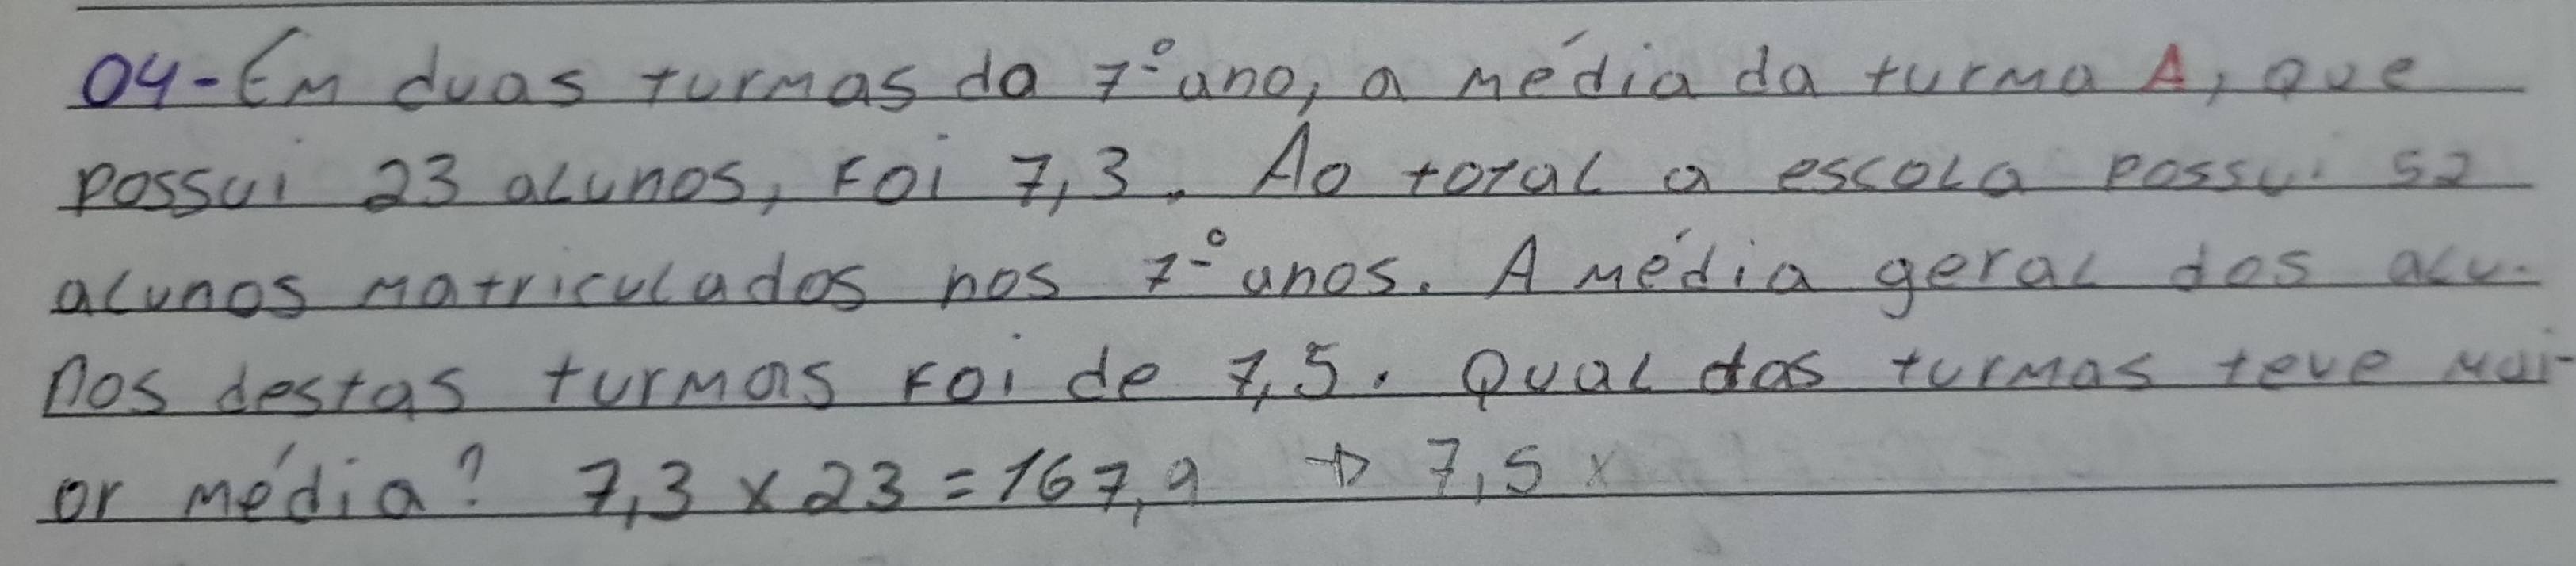 04-Em duas turmas do 7º ano, a média da turma A, que
possui 23 alunos, foi 7,3. Ao total a escola possui 52
alunos matriculados nos 7º anos. A média geral dos alu-
nos destas turmas foi de 7,5. Qual das turmas teve mai-
or média? 7,3 x 23 = 167,9 → 7,5 x